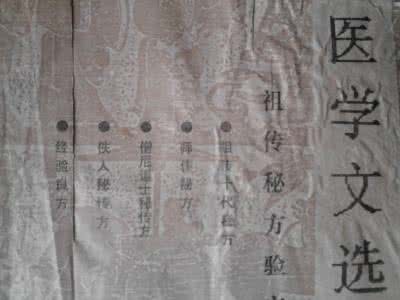 医学文选
祖传秘方验
●祖传十代秘方
●师传秘方
●僧尼道士秘传方
●佚人秘传方
●经验良方